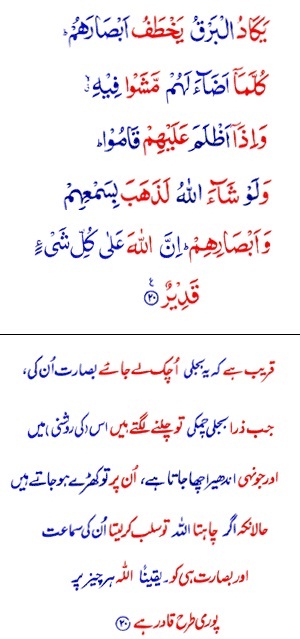 یَکَادُ الْبَرْقُ یَخْطَفُ اَبْصَارَهُمْ ؕ
کُلَّمَاۤ اَضَآءَ لَهُمْ مَّشَوْا فِیْهِ ۙۗ
وَ اِذَاۤ اَظْلَمَ عَلَیْهِمْ قَامُوْا ؕ
وَ لَوْ شَآءَ اللّٰهُ لَذَهَبَ بِسَمْعِهِمْ
وَ اَبْصَارِهِمْ ؕ اِنَّ اللّٰهَ عَلٰی کُلِّ شَیْءٍ
قَدِیْرٌ ۟۠ ﴿۲۰﴾
قریب ہے کہ یہ بجلی اُچک لے جائے بصارت اُن کی،
جب ذرا بجلی چمکی تو چلنے لگتے ہیں اس (کی روشنی) میں
اور جونہی اندھیرا چھا جاتا ہے، اُن پر تو کھڑے ہو جاتے ہیں
حالانکہ اگر چاہتا اللہ تو سلب کر لیتا اُن کی سماعت
اور بصارت ہی کو۔ یقیناً اللہ ہر چیز پر
پوری طرح قادر ہے ﴿۲۰﴾